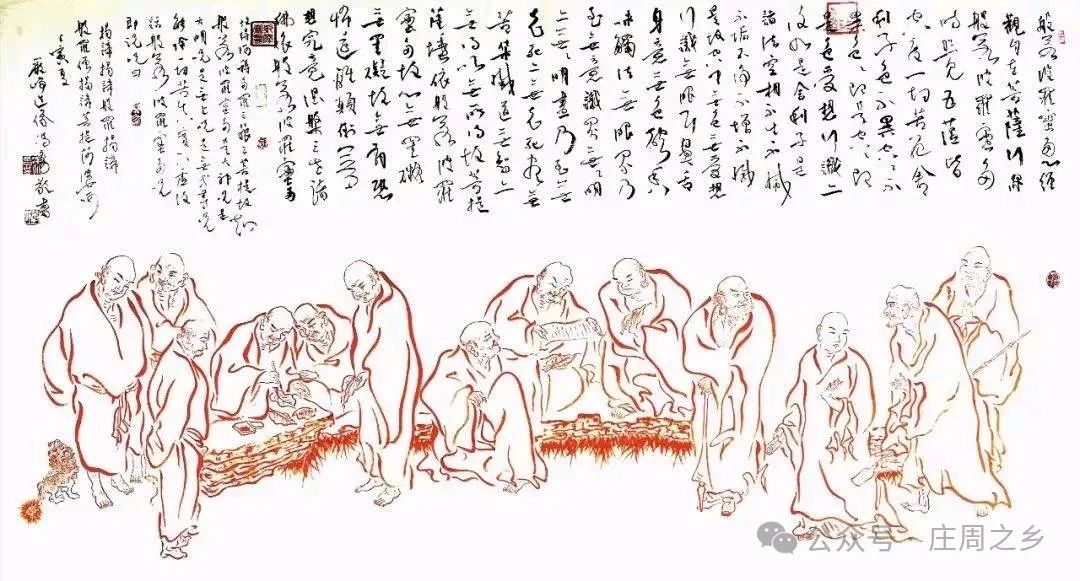 般若波羅蜜多心經
觀自在菩薩行深
般若波羅蜜多
時照見五蘊皆
空度一切苦厄舍
利子色不異空空不
異色色即是空空即
是色受想行識亦
復如是舍利子是
諸法空相不生不滅
不垢不淨不增不減
是故空中無色無受想
行識無眼耳鼻舌
身意無色聲香
味觸法無眼界乃
至無意識界無無明
亦無無明盡乃至無
老死亦無老死盡無
苦集滅道無智亦
無得以無所得故菩提
薩埵依般若波羅
蜜多故心無罣礙
無罣礙故無有恐
怖遠離顛倒夢
想究竟涅槃三世諸
佛依般若波羅蜜多
故得阿耨多羅三藐三菩提故知
般若波羅蜜多是大神咒是
大明咒是無上咒是無等等咒
能除一切苦真實不虛故
說般若波羅蜜多咒
即說咒曰
揭諦揭諦般羅揭諦
般羅僧揭諦菩提薩婆訶
壬寅夏
敬書
公众号 · 庄周之乡